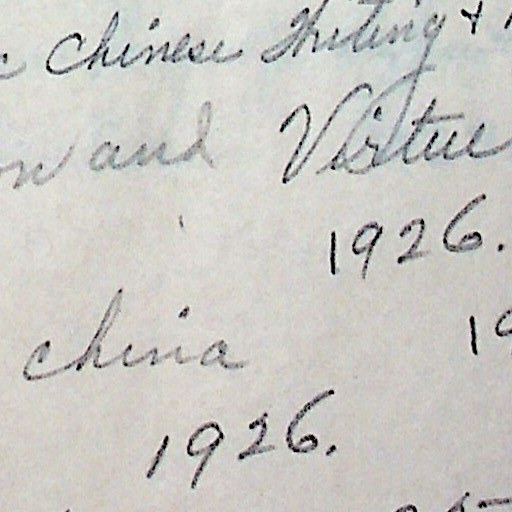 Chinese Writing +
and Virtue
1926.
China 19
1926.